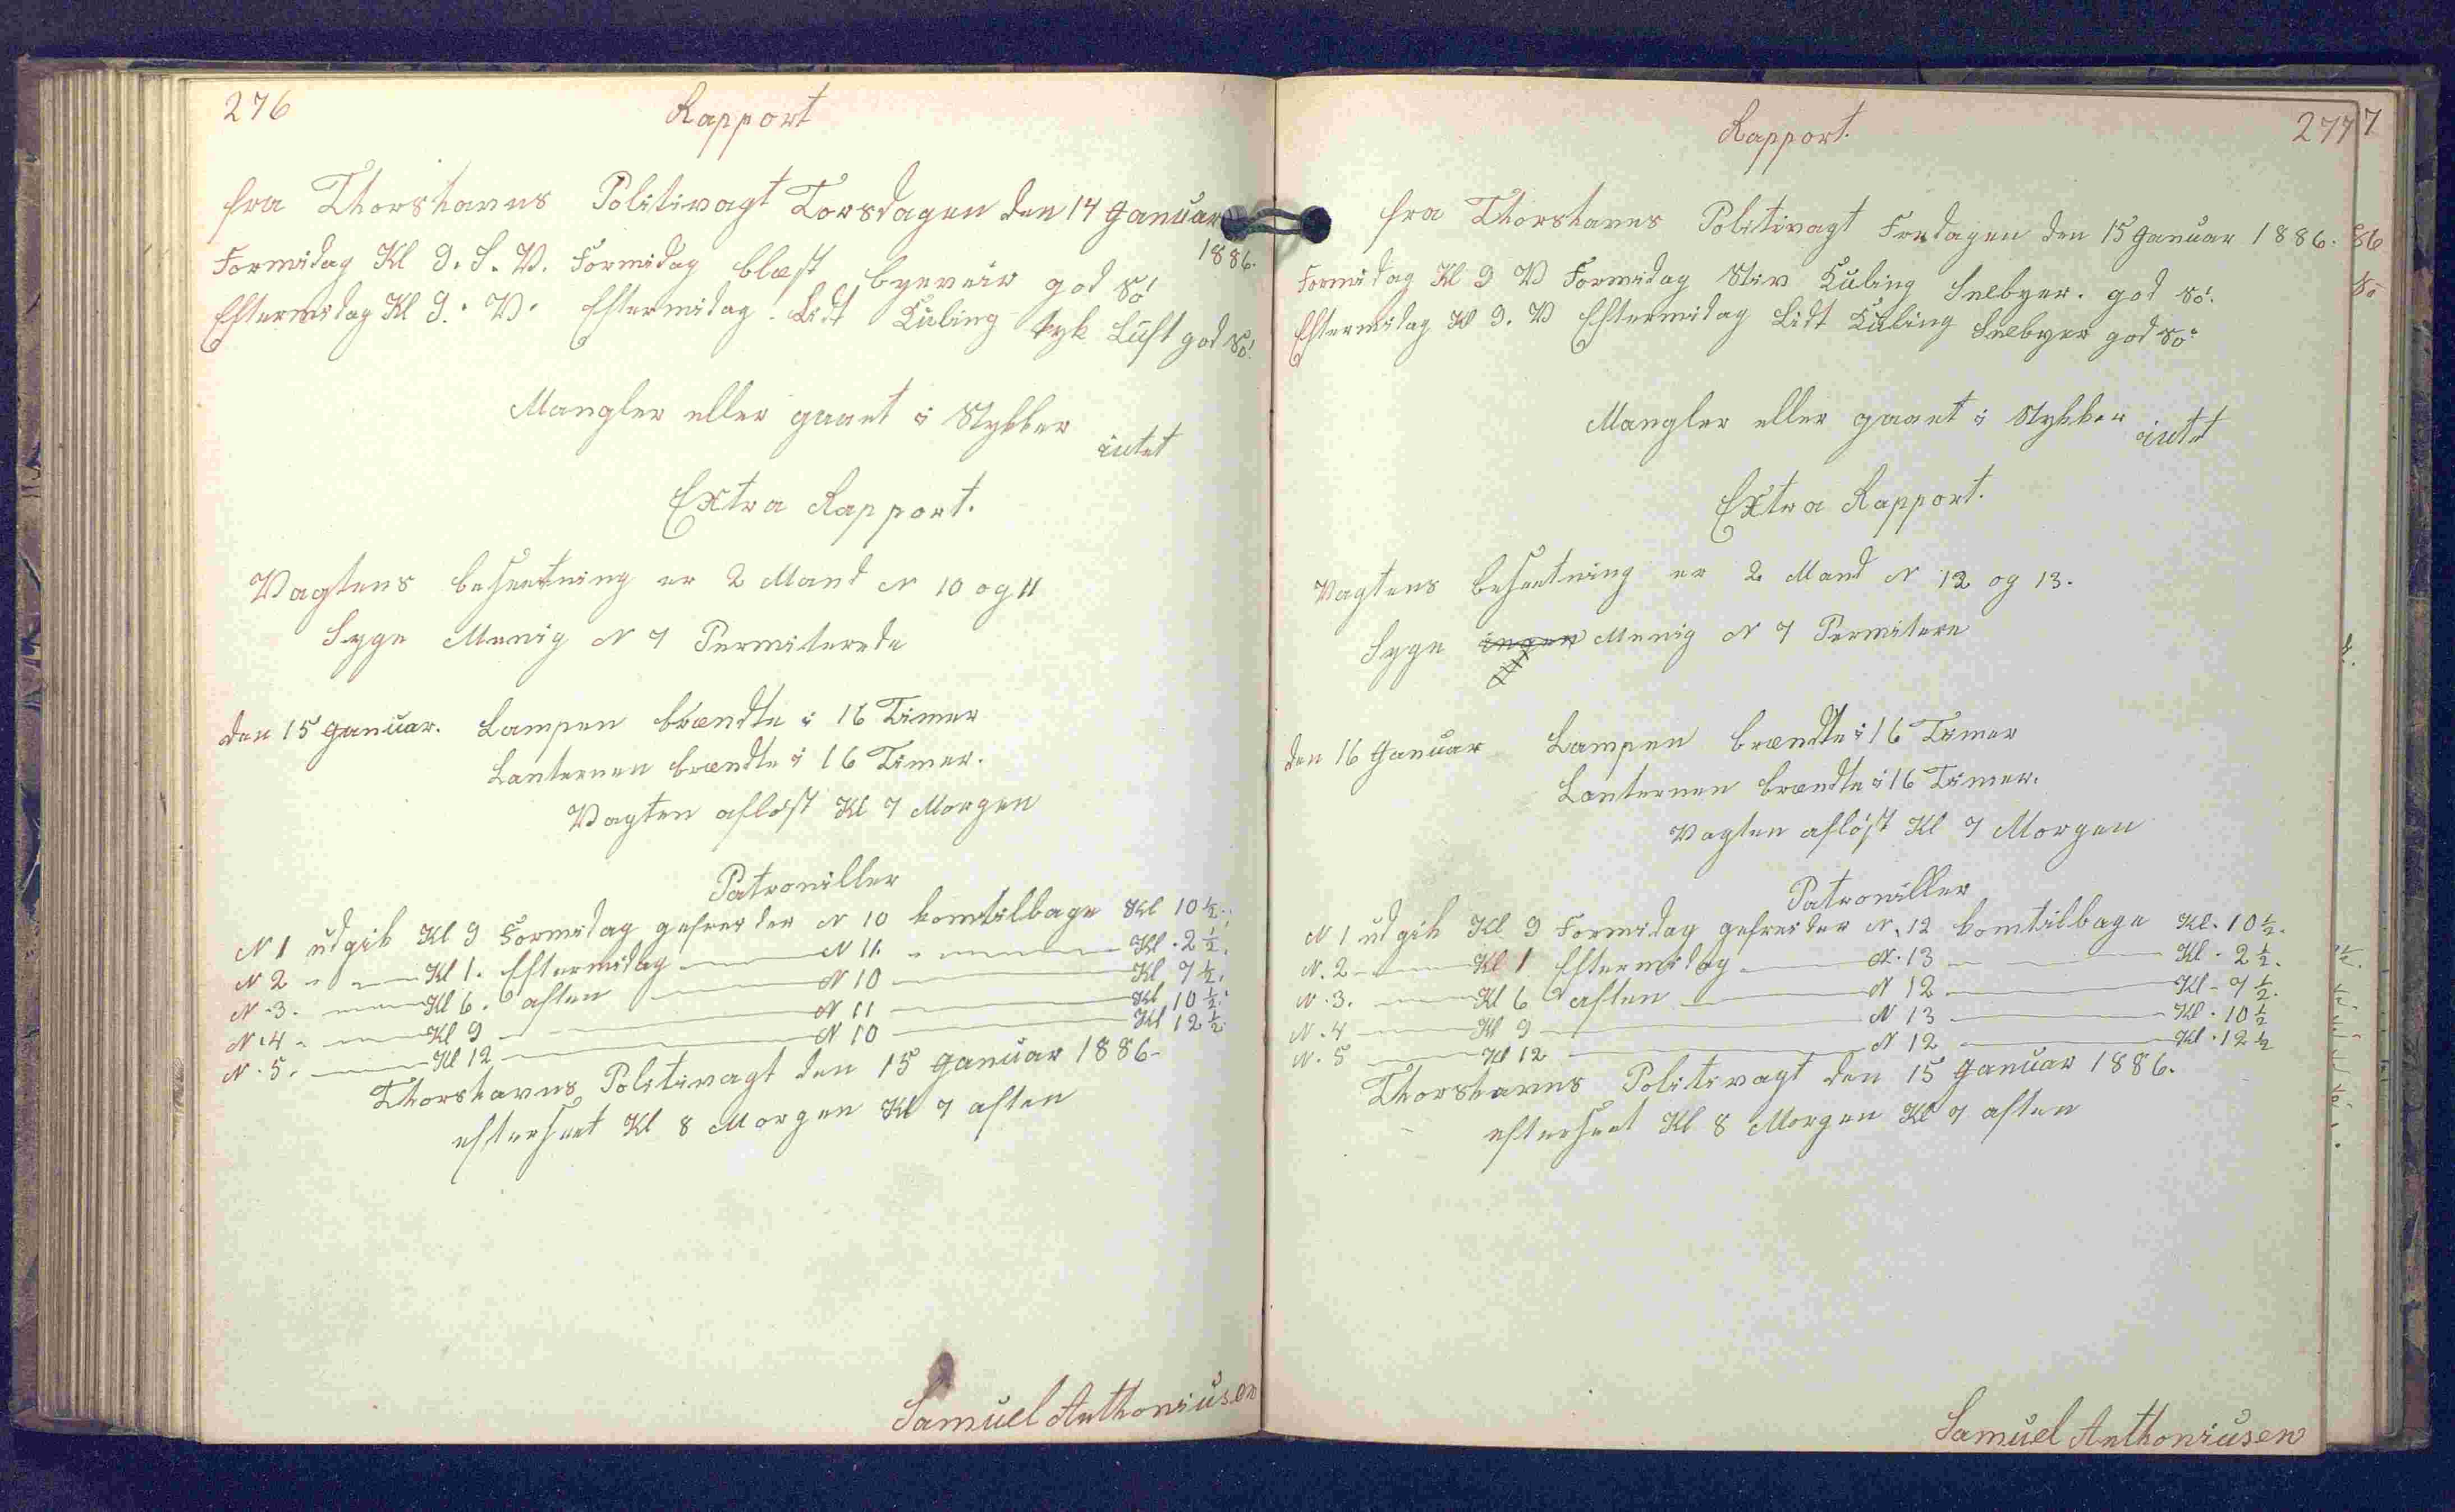 276
Rapport
fra Thorshavns Politivagt Torsdagen den 14 Januar
1886.
Formidag Kl 9. S. V. Formidag blæst byeveir god Sö!
Eftermidag Kl 9. V. Eftermidag Lidt Kuling tyk Luft god Sö!
Mangler eller gaaet i Stykker
intet
Extra Rapport.
Vagtens besætning er 2 Mand N 10 og 11
Syge Menig N 7 Permiterede
den 15 Januar. Lampen brændte i 16 Timer
Lanternen brændte i 16 Timer.
Vagten aflöst Kl 7 Morgen
Patrouiller
N 1 udgik Kl 9 Formidag gefreider N 10 komtilbage Kl 10½.
N 2 " — Kl 1. Eftermidag — N 11. " — Kl. 2½.
N. 3. — Kl 6. aften — N 10 — Kl 7½.
N. 4 " — Kl 9 — N 11 — Kl 10½.
N. 5. — Kl 12 — N 10 — Kl 12½
Thorshavns Politivagt den 15 Januar 1886.
efterseet Kl 8 Morgen Kl 7 aften
Samuel Anthoniusen
Rapport.
277
7
fra Thorshavns Politivagt Fredagen den 15 Januar 1886.
86
Formidag Kl 9 V Formidag Stiv Kuling Snebyer. god Sö.
Eftermidag Kl 9. V Eftermidag Lidt Kuling Snebyer god Sö.
Mangler eller gaaet i Stykker
intet
Extra Rapport.
Vagtens besætning er 2 Mand N 12 og 13.
Syge ingen Menig N 7 Permitere
den 16 Januar Lampen brændte i 16 Timer
Lanternen brændte i 16 Timer.
Vagten aflöst Kl 7 Morgen
Patrouiller
N 1 udgik Kl 9 Formidag gefreider N. 12 komtilbage Kl. 10½.
N. 2 — Kl 1 Eftermidag — N. 13 — Kl. 2½.
N. 3. — Kl 6 aften — N 12 — Kl. 7½.
N. 4 — Kl 9 — N 13 — Kl. 10½
N. 5 — Kl 12 — N 12 — Kl. 12½
Thorshavns Politivagt den 15 Januar 1886.
efterseet Kl 8 Morgen Kl 7 aften
Samuel Anthoniusen